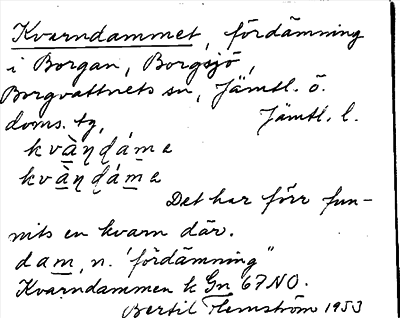 Kvarndammet, fördämning
i Borgan, Borgsjö,
Borgvattnets sn, Jämtl. ö.
doms. tg, Jämtl. l.
kvàṇḍáme
kvàṇḍáme
Det har förr fun-
nits en kvarn där.
dam, n. 'fördämning"
Kvarndammen k Gn 67 NO.
Bertil Flemström 1953